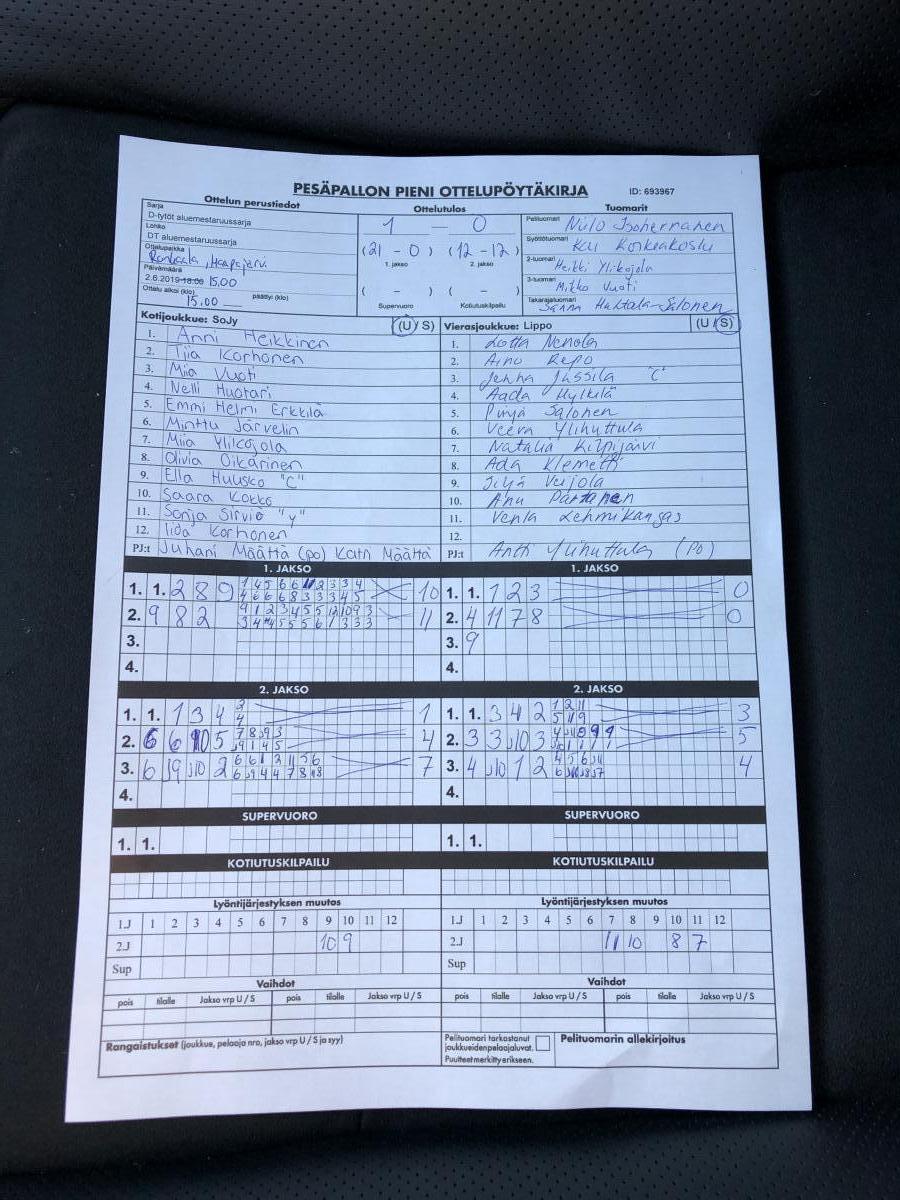 PESÄPALLON PIENI OTTELUPÖYTÄKIRJA
ID: 693967
Ottelun perustiedot
Sarja
D-tytöt aluemestaruussarja
Lohko
DT aluemestaruussarja
Ottelupaikka
Haapajärvi
Päivämäärä
2.6.2019 18:00 15.00
Ottelu alkoi (klo) 15.00 päättyi (klo)
Ottelutulos
1 — 0
(21 - 0) (12 - 12)
1. jakso 2. jakso
( - ) ( - )
Supervuoro Kotiutuskilpailu
Tuomarit
Pelituomari Niilo Isoherranen
Syöttötuomari Koskeakoski
2-tuomari Heikki Ylikojola
3-tuomari Mitko Vuoti
Takarajatuomari Huhtala-Salonen
Kotijoukkue: SoJy (U / S)
1. Anni Heikkinen
2. Tiia Korhonen
3. Mia Vuoti
4. Nelli Huotari
5. Emmi Helmi Erkkilä
6. Minttu Järvelin
7. Miia Ylikojola
8. Olivia Oikarinen
9. Ella Huusko "C"
10. Saara Kokko
11. Sonja Sirviö "Y"
12. Iida Korhonen
PJ:t Juhani Määttä (po) Katri Määttä
Vierasjoukkue: Lippo (U / S)
1. Lotta Nenola
2. Aino Repo
3. Jenna Jussila "C"
4. Aada Hylkilä
5. Pinja Salonen
6. Veera Ylihuttula
7. Natalia Kilpijärvi
8. Ada Klemetti
9. Silja Veijola
10. Anu Partanen
11. Venla Lehmikangas
12.
PJ:t Antti Ylihuttula (PO)
1. JAKSO
1. 1. 2 8 9 10
2. 9 8 2 11
3.
4.
1. JAKSO
1. 1. 1 2 3 0
2. 4 11 7 8 0
3. 9
4.
2. JAKSO
1. 1. 1 3 4 1
2. 6 6 10 5 4
3. 6 9 10 2 7
4.
2. JAKSO
1. 1. 3 4 2 3
2. 3 3 10 3 5
3. 4 10 1 2 4
4.
SUPERVUORO
1. 1.
SUPERVUORO
1. 1.
KOTIUTUSKILPAILU
KOTIUTUSKILPAILU
Lyöntijärjestyksen muutos
1.J 1 2 3 4 5 6 7 8 9 10 11 12
2.J 10 9
Sup
Lyöntijärjestyksen muutos
1.J 1 2 3 4 5 6 7 8 9 10 11 12
2.J 11 10 8 7
Sup
Vaihdot
pois tilalle Jakso vrp U / S pois tilalle Jakso vrp U / S
Vaihdot
pois tilalle Jakso vrp U / S pois tilalle Jakso vrp U / S
Rangaistukset (joukkue, pelaaja nro, jakso vrp U / S ja syy)
Pelituomari tarkastanut
joukkueiden pelaajaluvat.
Puutteet merkitty erikseen.
Pelituomarin allekirjoitus